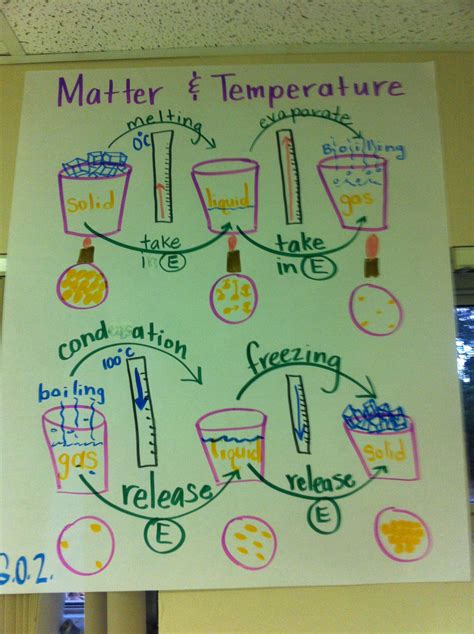 Matter & Temperature
melting
evaporate
0°C
Boilling
solid
liquid
gas
take
in E
take
in E
condensation
freezing
100°C
boiling
gas
liquid
solid
release
E
release
E
G.O.Z.